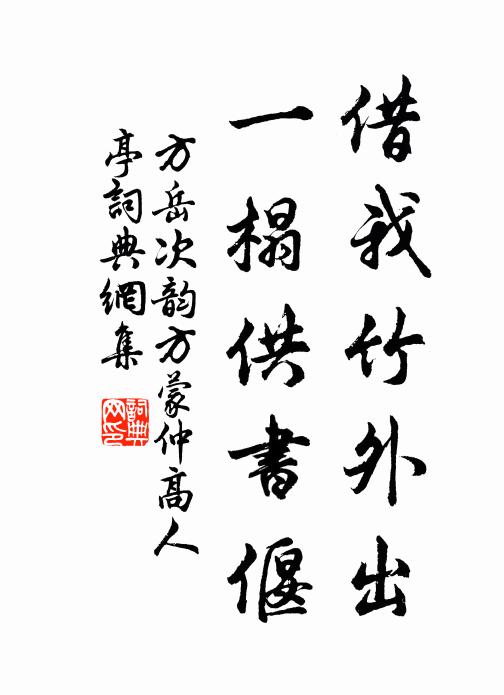 借我竹外出
一榻供書偃
方岳次韵方蒙仲高人
亭詞典網集
詞典
网印